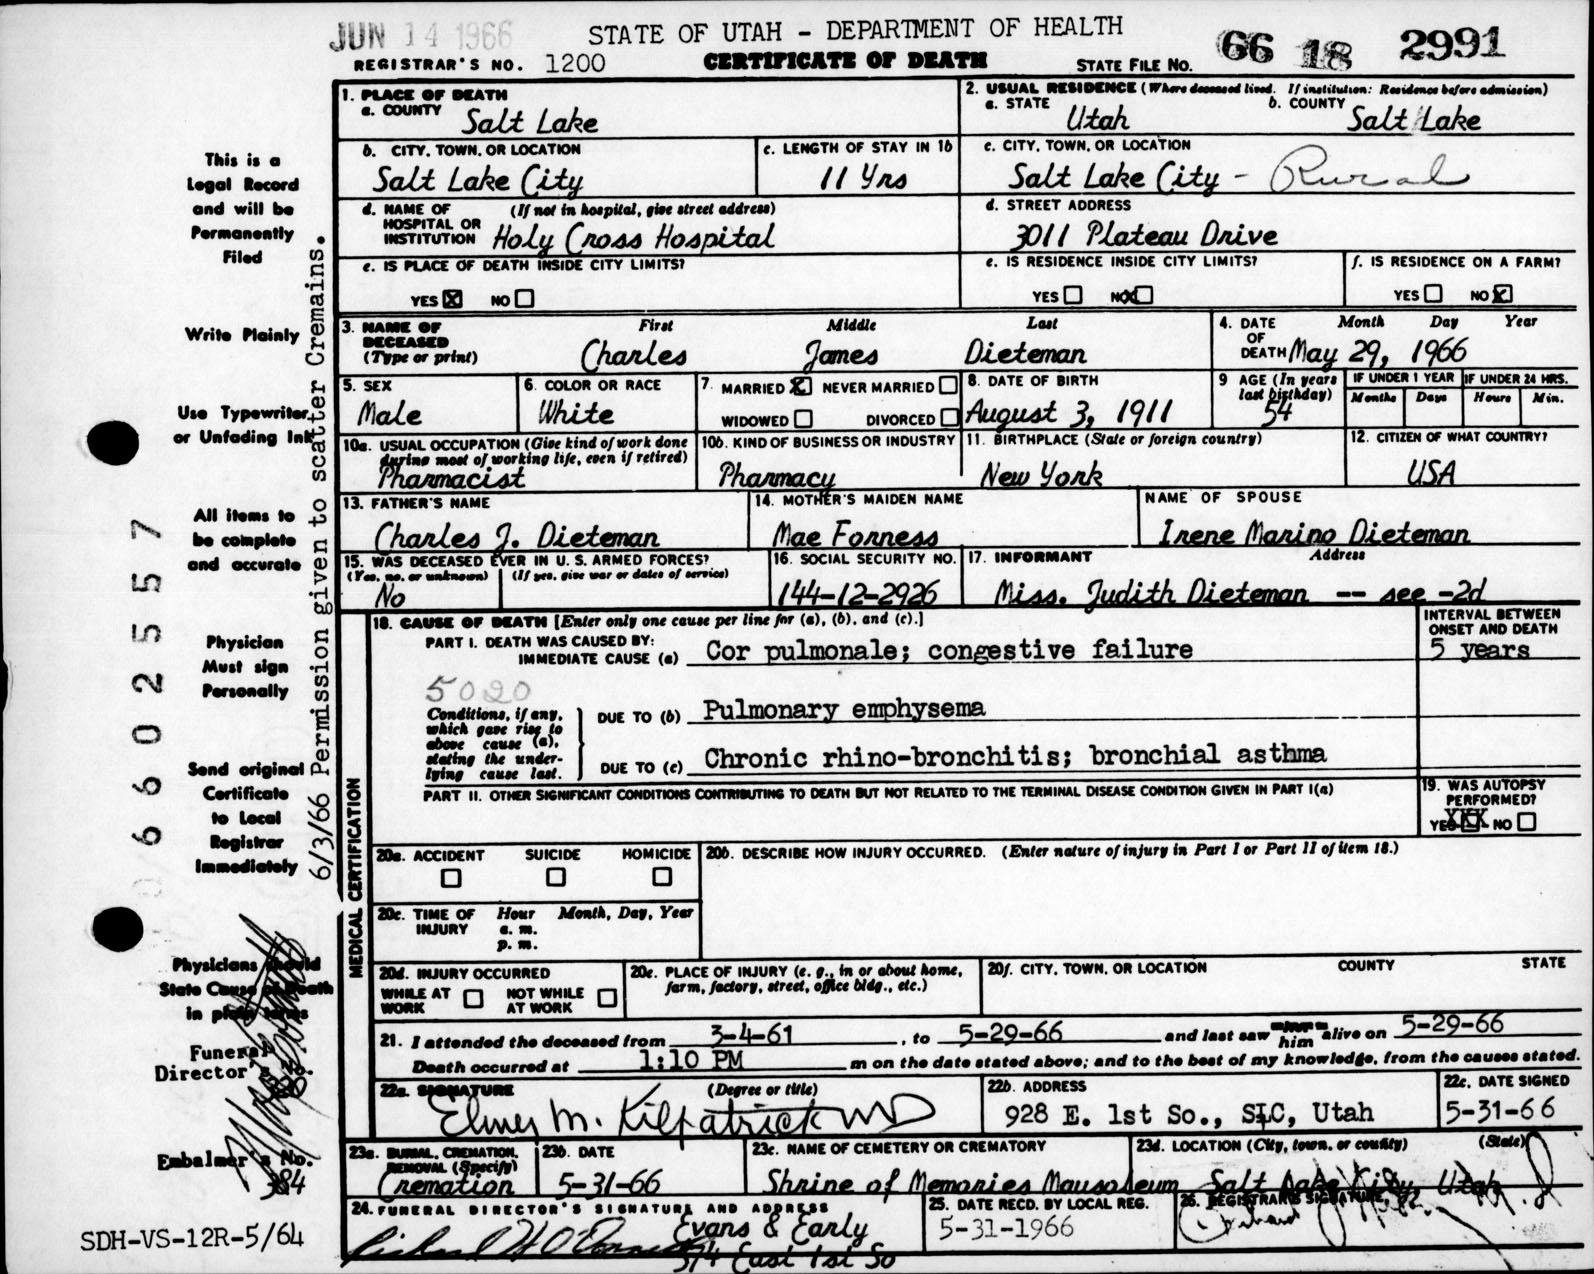 JUN 14 1966
STATE OF UTAH - DEPARTMENT OF HEALTH
66 18 2991
REGISTRAR'S NO. 1200
CERTIFICATE OF DEATH
STATE FILE NO.
1. PLACE OF DEATH
a. COUNTY
Salt Lake
2. USUAL RESIDENCE (Where deceased lived. If institution: Residence before admission)
a. STATE
Utah
b. COUNTY
Salt Lake
b. CITY, TOWN, OR LOCATION
Salt Lake City
c. LENGTH OF STAY IN 1b
11 Yrs
c. CITY, TOWN, OR LOCATION
Salt Lake City - Rural
d. NAME OF HOSPITAL OR INSTITUTION
(If not in hospital, give street address)
Holy Cross Hospital
d. STREET ADDRESS
3011 Plateau Drive
e. IS PLACE OF DEATH INSIDE CITY LIMITS?
YES X NO
e. IS RESIDENCE INSIDE CITY LIMITS?
YES NO X
f. IS RESIDENCE ON A FARM?
YES NO X
3. NAME OF DECEASED
(Type or print)
First Middle Last
Charles James Dieteman
4. DATE OF DEATH
Month Day Year
May 29, 1966
5. SEX
Male
6. COLOR OR RACE
White
7. MARRIED X NEVER MARRIED
WIDOWED DIVORCED
8. DATE OF BIRTH
August 3, 1911
9 AGE (In years last birthday)
54
IF UNDER 1 YEAR
Months Days
IF UNDER 24 HRS.
Hours Min.
10a. USUAL OCCUPATION (Give kind of work done during most of working life, even if retired)
Pharmacist
10b. KIND OF BUSINESS OR INDUSTRY
Pharmacy
11. BIRTHPLACE (State or foreign country)
New York
12. CITIZEN OF WHAT COUNTRY?
USA
13. FATHER'S NAME
Charles J. Dieteman
14. MOTHER'S MAIDEN NAME
Mae Forness
NAME OF SPOUSE
Irene Marino Dieteman
15. WAS DECEASED EVER IN U. S. ARMED FORCES?
(Yes, no, or unknown) (If yes, give war or dates of service)
No
16. SOCIAL SECURITY NO.
144-12-2926
17. INFORMANT Address
Miss. Judith Dieteman -- see -2d
18. CAUSE OF DEATH [Enter only one cause per line for (a), (b), and (c).]
PART I. DEATH WAS CAUSED BY:
IMMEDIATE CAUSE (a) Cor pulmonale; congestive failure
INTERVAL BETWEEN ONSET AND DEATH
5 years
5020
Conditions, if any, which gave rise to above cause (a), stating the underlying cause last.
DUE TO (b) Pulmonary emphysema
DUE TO (c) Chronic rhino-bronchitis; bronchial asthma
PART II. OTHER SIGNIFICANT CONDITIONS CONTRIBUTING TO DEATH BUT NOT RELATED TO THE TERMINAL DISEASE CONDITION GIVEN IN PART I(a)
19. WAS AUTOPSY PERFORMED?
YES XXX NO
MEDICAL CERTIFICATION
20a. ACCIDENT SUICIDE HOMICIDE
20b. DESCRIBE HOW INJURY OCCURRED. (Enter nature of injury in Part I or Part II of item 18.)
20c. TIME OF INJURY
Hour Month, Day, Year
a. m.
p. m.
20d. INJURY OCCURRED
WHILE AT WORK NOT WHILE AT WORK
20e. PLACE OF INJURY (e. g., in or about home, farm, factory, street, office bldg., etc.)
20f. CITY, TOWN, OR LOCATION COUNTY STATE
21. I attended the deceased from 3-4-61, to 5-29-66 and last saw him alive on 5-29-66
Death occurred at 1:10 PM m on the date stated above; and to the best of my knowledge, from the causes stated.
22a. SIGNATURE (Degree or title)
Elmer M. Kilpatrick MD
22b. ADDRESS
928 E. 1st So., SLC, Utah
22c. DATE SIGNED
5-31-66
23a. BURIAL, CREMATION, REMOVAL (Specify)
Cremation
23b. DATE
5-31-66
23c. NAME OF CEMETERY OR CREMATORY
Shrine of Memories Mausoleum
23d. LOCATION (City, town, or county) (State)
Salt Lake City, Utah
24. FUNERAL DIRECTOR'S SIGNATURE AND ADDRESS
Evans & Early
574 East 1st So
25. DATE RECD. BY LOCAL REG.
5-31-1966
26. REGISTRAR'S SIGNATURE
This is a
Legal Record
and will be
Permanently
Filed
Write Plainly
Use Typewriter
or Unfading Ink
All items to
be complete
and accurate
Physician
Must sign
Personally
Send original
Certificate
to Local
Registrar
Immediately
Physicians should
State Cause of Death
in plain terms
Funeral
Director's
Embalmer's No.
384
SDH-VS-12R-5/64
6602557
6/3/66 Permission given to scatter Cremains.